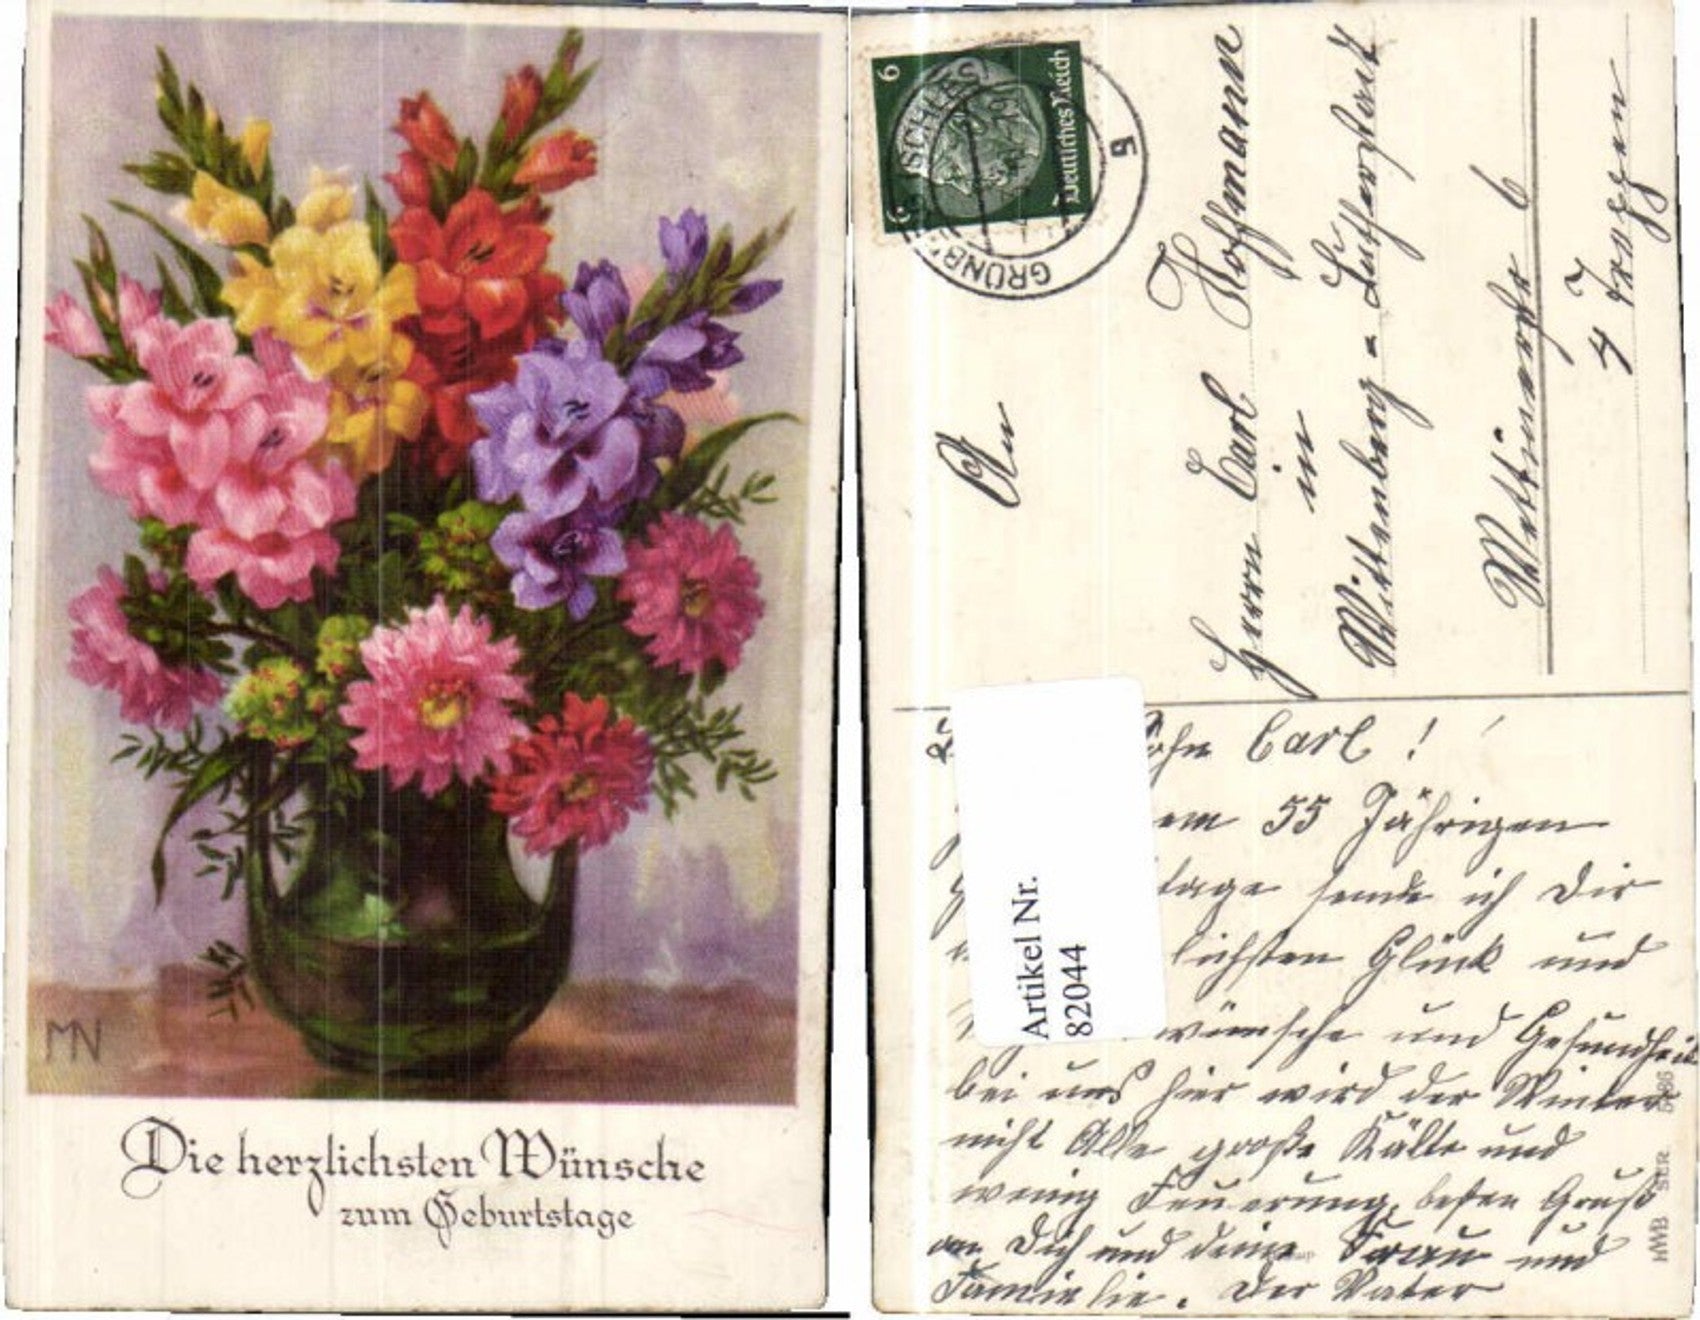 MN
Die herzlichsten Wünsche
zum Geburtstage
6
6
Deutsches Reich
GRÜNB
SCHLES
g
An
Herrn Carl Hoffmann
in
Wittenberg = Lutherstadt
6
4 Treppen
Artikel Nr.
82044
Sohn Carl!
em 55 Jährigen
tage sende ich Dir
lichsten Glück und
wünsche und Gesundheit
bei uns hier wird der Winter
nicht Alle große Kälte und
wenig Feuerung, besten Gruß
an Dich und deine Frau und
Familie. Der Vater
HWB SER